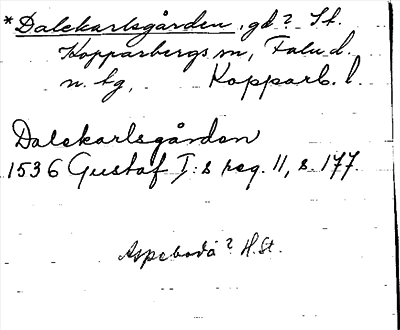 *Dalekarlsgården, gd? St.
Kopparbergs sn, Falu d.
n. tg, Kopparb. l.
Dalekarlsgårdan
1536 Gustaf I:s reg. 11, s. 177.
Aspeboda? H.St.